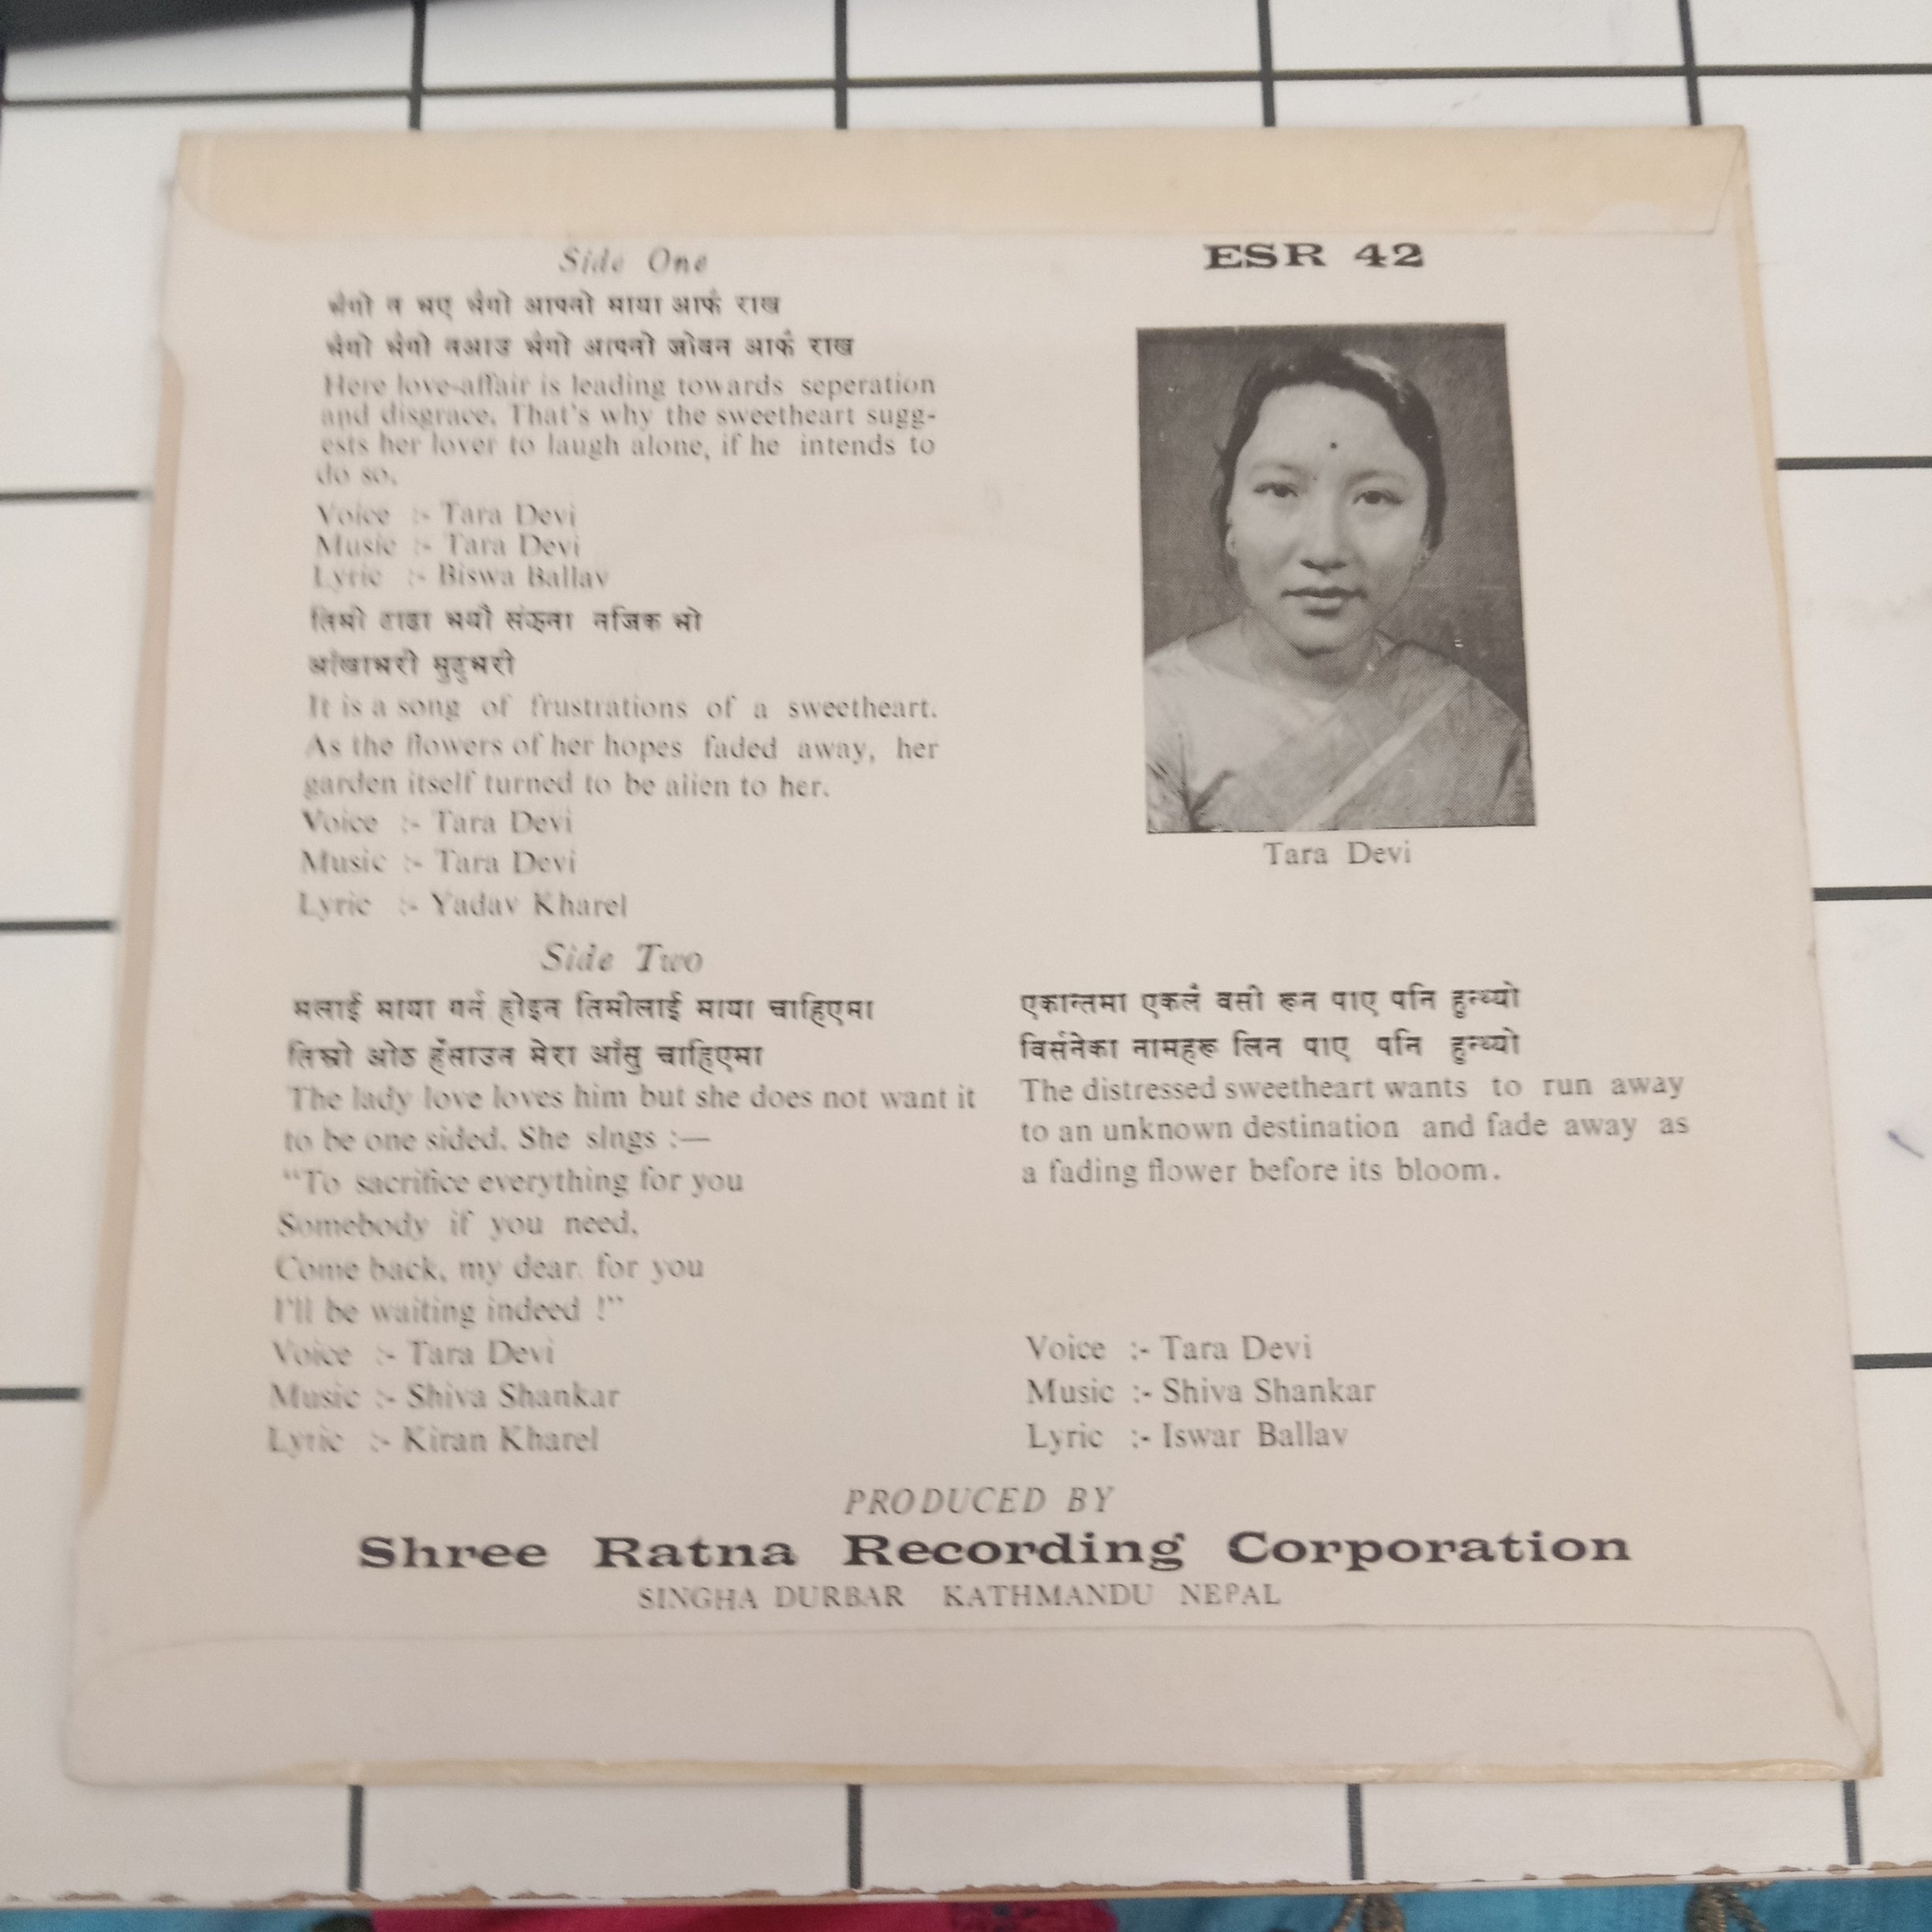 Side One
भैगो न भए भैगो आफ्नो माया आफै राख
भैगो भैगो नआउ भैगो आफ्नो जोवन आफै राख
Here love-affair is leading towards seperation
and disgrace. That's why the sweetheart sugg-
ests her lover to laugh alone, if he intends to
do so.
Voice :- Tara Devi
Music :- Tara Devi
Lyric :- Biswa Ballav
तिमी टाढा भयौ संझना नजिक भो
आंखाभरी मुटुभरी
It is a song of frustrations of a sweetheart.
As the flowers of her hopes faded away, her
garden itself turned to be alien to her.
Voice :- Tara Devi
Music :- Tara Devi
Lyric :- Yadav Kharel
ESR 42
Tara Devi
Side Two
मलाई माया गर्न होइन तिमीलाई माया चाहिएमा
तिम्रो ओठ हँसाउन मेरा आँसु चाहिएमा
The lady love loves him but she does not want it
to be one sided. She sIngs :—
"To sacrifice everything for you
Somebody if you need,
Come back, my dear. for you
I'll be waiting indeed !"
Voice :- Tara Devi
Music :- Shiva Shankar
Lyric :- Kiran Kharel
एकान्तमा एकलै वसी रून पाए पनि हुन्थ्यो
विर्सनेका नामहरू लिन पाए पनि हुन्थ्यो
The distressed sweetheart wants to run away
to an unknown destination and fade away as
a fading flower before its bloom.
Voice :- Tara Devi
Music :- Shiva Shankar
Lyric :- Iswar Ballav
PRODUCED BY
Shree Ratna Recording Corporation
SINGHA DURBAR KATHMANDU NEPAL